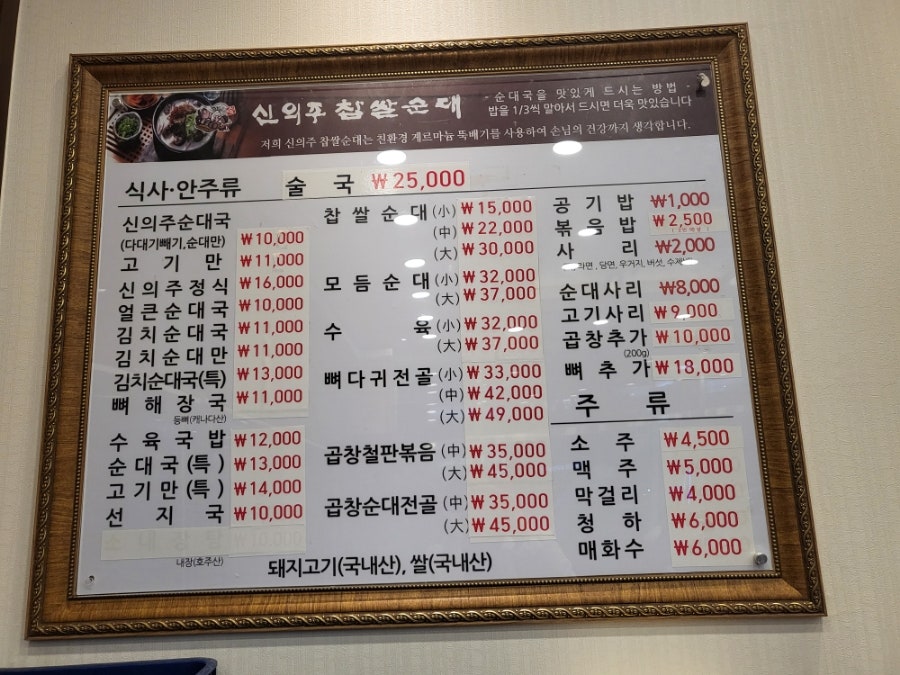 신의주 찹쌀순대
- 순대국을 맛있게 드시는 방법 -
밥을 1/3씩 말아서 드시면 더욱 맛있습니다
저희 신의주 찹쌀순대는 친환경 게르마늄 뚝배기를 사용하여 손님의 건강까지 생각합니다.
식사·안주류
술국 ₩25,000
신의주순대국
(다대기빼기,순대만) ₩10,000
고기만 ₩11,000
신의주정식 ₩16,000
얼큰순대국 ₩10,000
김치순대국 ₩11,000
김치순대만 ₩11,000
김치순대국(특) ₩13,000
뼈해장국 ₩11,000
등뼈(캐나다산)
수육국밥 ₩12,000
순대국(특) ₩13,000
고기만(특) ₩14,000
선지국 ₩10,000
내장(호주산)
찹쌀순대 (小) ₩15,000
(中) ₩22,000
(大) ₩30,000
모듬순대 (小) ₩32,000
(大) ₩37,000
수육 (小) ₩32,000
(大) ₩37,000
뼈다귀전골 (小) ₩33,000
(中) ₩42,000
(大) ₩49,000
곱창철판볶음 (中) ₩35,000
(大) ₩45,000
곱창순대전골 (中) ₩35,000
(大) ₩45,000
공기밥 ₩1,000
볶음밥 ₩2,500
사리 ₩2,000
당면, 우거지, 버섯,
순대사리 ₩8,000
고기사리 ₩9,000
곱창추가 ₩10,000
(200g)
뼈추가 ₩18,000
주류
소주 ₩4,500
맥주 ₩5,000
막걸리 ₩4,000
청하 ₩6,000
매화수 ₩6,000
돼지고기(국내산), 쌀(국내산)